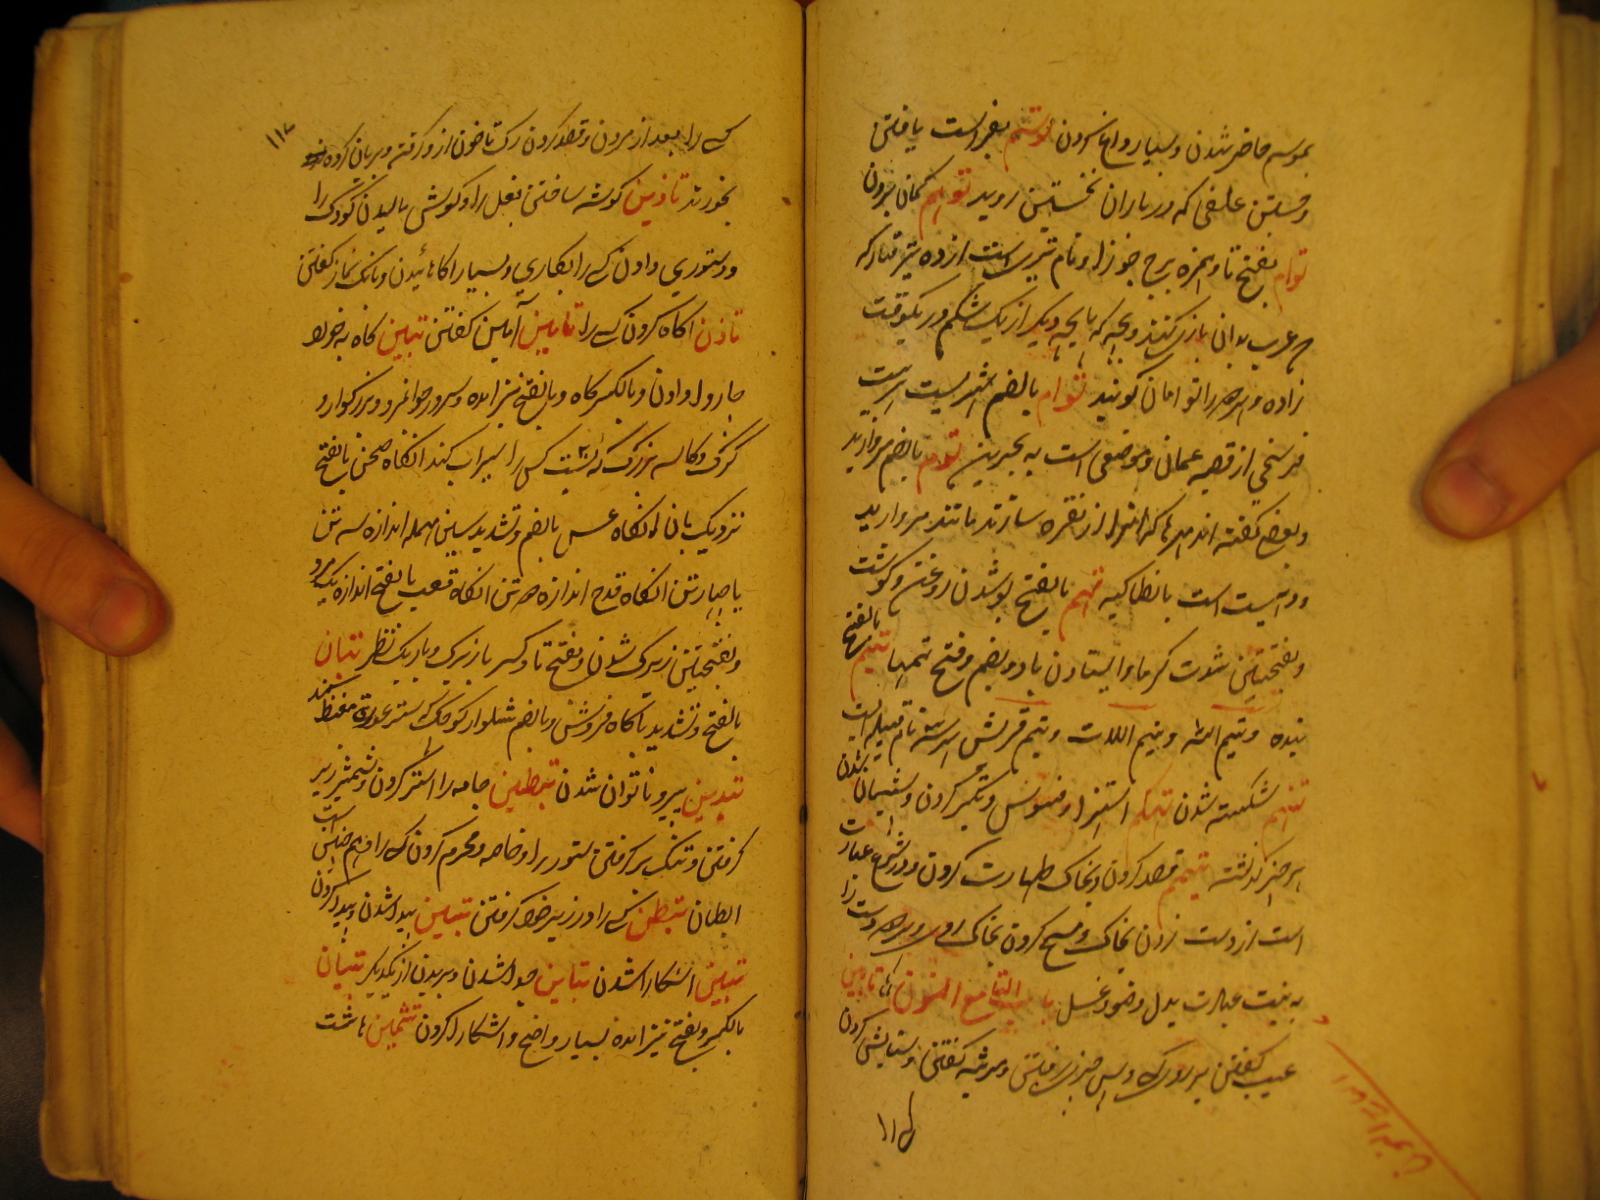 بموسم حاضر شدن و بسیار داغ کردن توسّم بفراست یافتن
و جستن علفی که در باران نخستین روید توهم گمان بردن
توأم بفتح تا و همزه برج جوزا و نام تیریست از ده تیر قمار که
عرب بدانی بازی کنند و بچه که با بچه دیگر از یک شکم در یکوقت
زاده و هر دو را توامان گویند توام بالضم شهریست بر بیست
فرسخی از قصبه عمان و موضعی است به بحرین توم بالضم مروارید
و بعضی گفته اند مهرها که از نقره سازند مانند مروارید
و دهیست است بانطاکیه تهم بالفتح بو شدن روغن و گوشت
و بفتحتین شدت گرما و ایستادن باد و بضم و فتح تهمتها تیم بالفتح
بنده و تیم الله و تیم اللات و تیم قریش هر سه نام قبیله است
تهزم شکسته شدن تهکم استهزا و فسوس و تکبر کردن و پشیمان شدن
بر چیز گذشته تیمم قصد کردن و بخاک طهارت کردن و در شرع عبارت
است از دست زدن بخاک و مسح کردن بخاک روی و هر دو دست را
به نیت عبادت بدل وضو و غسل باب التا مع النون تابین
عیب گفتن بر روی و پس چیزی رفتن و مرثیه گفتن و ستایش کردن
۱۱۷
کسی را بعد از مردن و قصد کردن رگ تا خون ازو گرفته و بریان کرده
بخورند تاذین گوشه ساختن نعل را و گوش مالیدن کودک را
و دستوری دادن کسی را بکاری و بسیار آگاهانیدن و بانگ نماز گفتن
تاذن آگاه کردن کسی را تامین آمین گفتن تبن کاه به خورد
چاروا دادن و بالکسر کاه و بالفتح نیز امده و سرور جوانمرد و بزرگوار و
گرگ و کاسه بزرگ که بیست کس را سیراب کند انگاه صحن بالفتح
نزدیک بان انگاه عس بالضم و تشدید سین مهمله اندازه سه تن
یا چهار تن انگاه قدح اندازه دو تن انگاه قعب بالفتح اندازه یک مرد
و بفتحتین زیرک شدن و بفتح تا و کسر با زیرک و باریک نظر تبان
بالفتح و تشدید با کاه فروش و بالضم شلوار کوچک که ستر عورت مغلظ کند
تبدین پیر و ناتوان شدن تبطین جامه را استر کردن و شمشیر زیر
گرفتن و تنگ بر گرفتن ستور را و خاصه و محرم کردن کسی را
ابطان تبطن کسی را در زیر خود گرفتن تبیین پیدا شدن و پیدا کردن
تبین آشکارا شدن تباین جدا شدن و بریدن از یکدیگر تبیان
بالکسر و بفتح نیز امده بسیار واضح و آشکارا کردن تثمین هشت